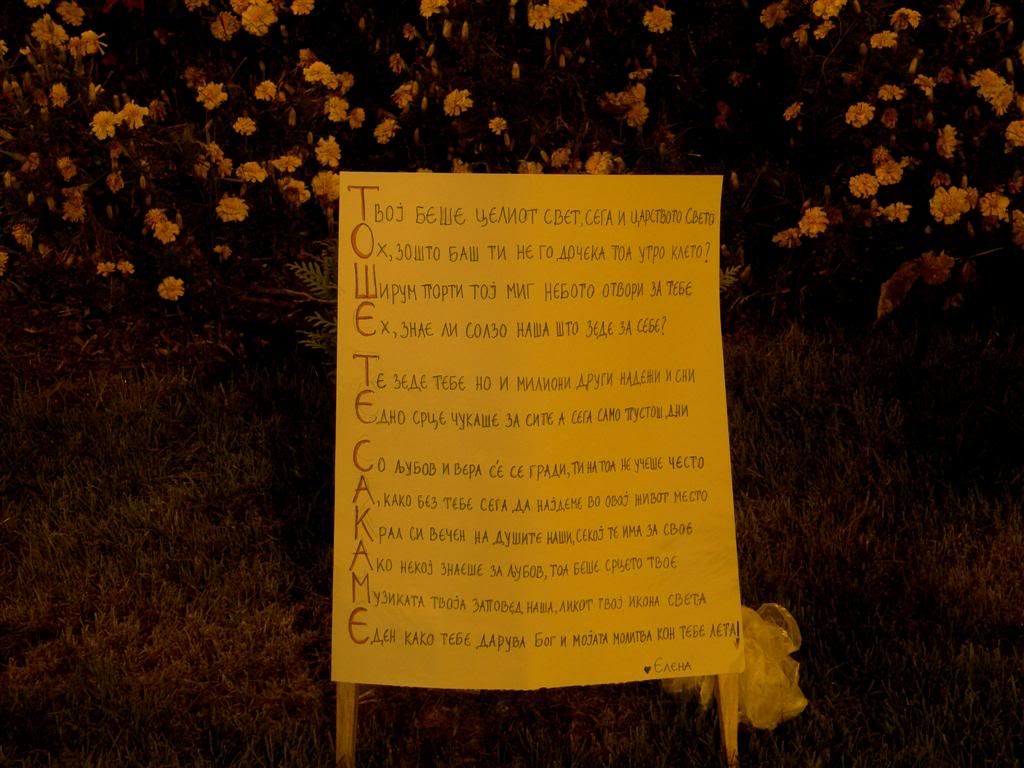 Твој беше целиот свет, сега и царството Свето
Ох, зошто баш ти не го дочека тоа утро клето?
Ширум порти тој миг небото отвори за тебе
Ех, знае ли солзо наша што зеде за себе?
Те зеде тебе но и милиони други надежи и сни
Едно срце чукаше за сите а сега само пустош, дни
Со љубов и вера сѐ се гради, ти на тоа не учеше често
А, како без тебе сега, да најдеме во овој живот место
Крал си вечен на душите наши, секој те има за свое
Ако некој знаеше за љубов, тоа беше срцето твое
Музиката твоја заповед наша, ликот твој икона света
Еден како тебе дарува Бог и мојата молитва кон тебе лета!
♥ Елена